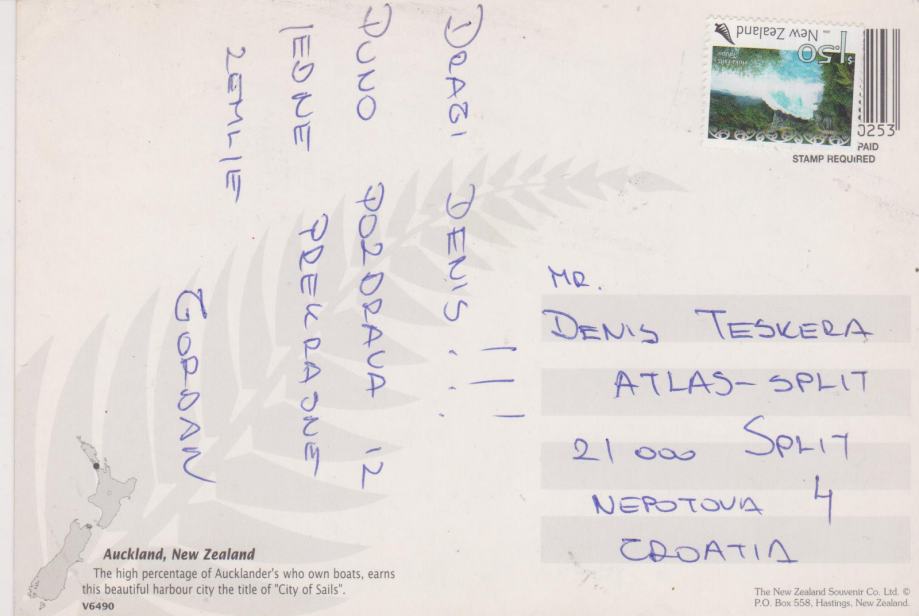 DRAGI DENIS!!!
PUNO POZDRAVA IZ
JEDNE PREKRASNE
ZEMLJE
GORDAN
$1.50
New Zealand
0253
PAID
STAMP REQUIRED
MR.
DENIS TESKERA
ATLAS-SPLIT
21000 SPLIT
NEPOTOVA 4
CROATIA
Auckland, New Zealand
The high percentage of Aucklander's who own boats, earns
this beautiful harbour city the title of "City of Sails".
V6490
The New Zealand Souvenir Co. Ltd. ©
P.O. Box 558, Hastings, New Zealand.